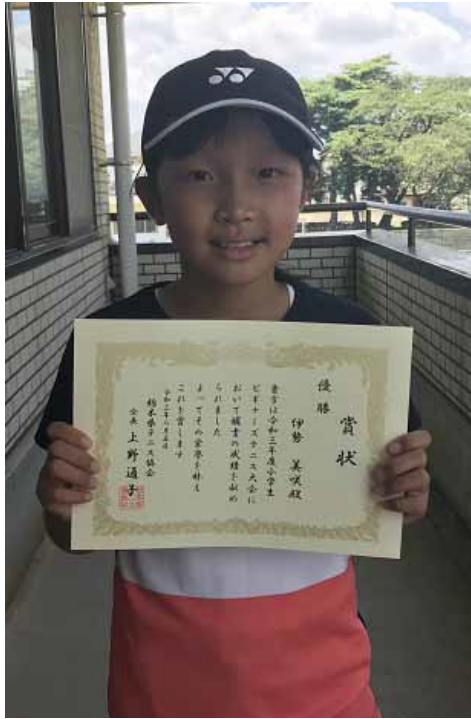 賞状
優勝
伊勢 美咲殿
貴方は令和三年度小学生
ビギナーズテニス大会に
おいて頭書の成績を収め
られました
よってその栄誉を称え
これを賞します
栃木県テニス協会
会長 上野通子